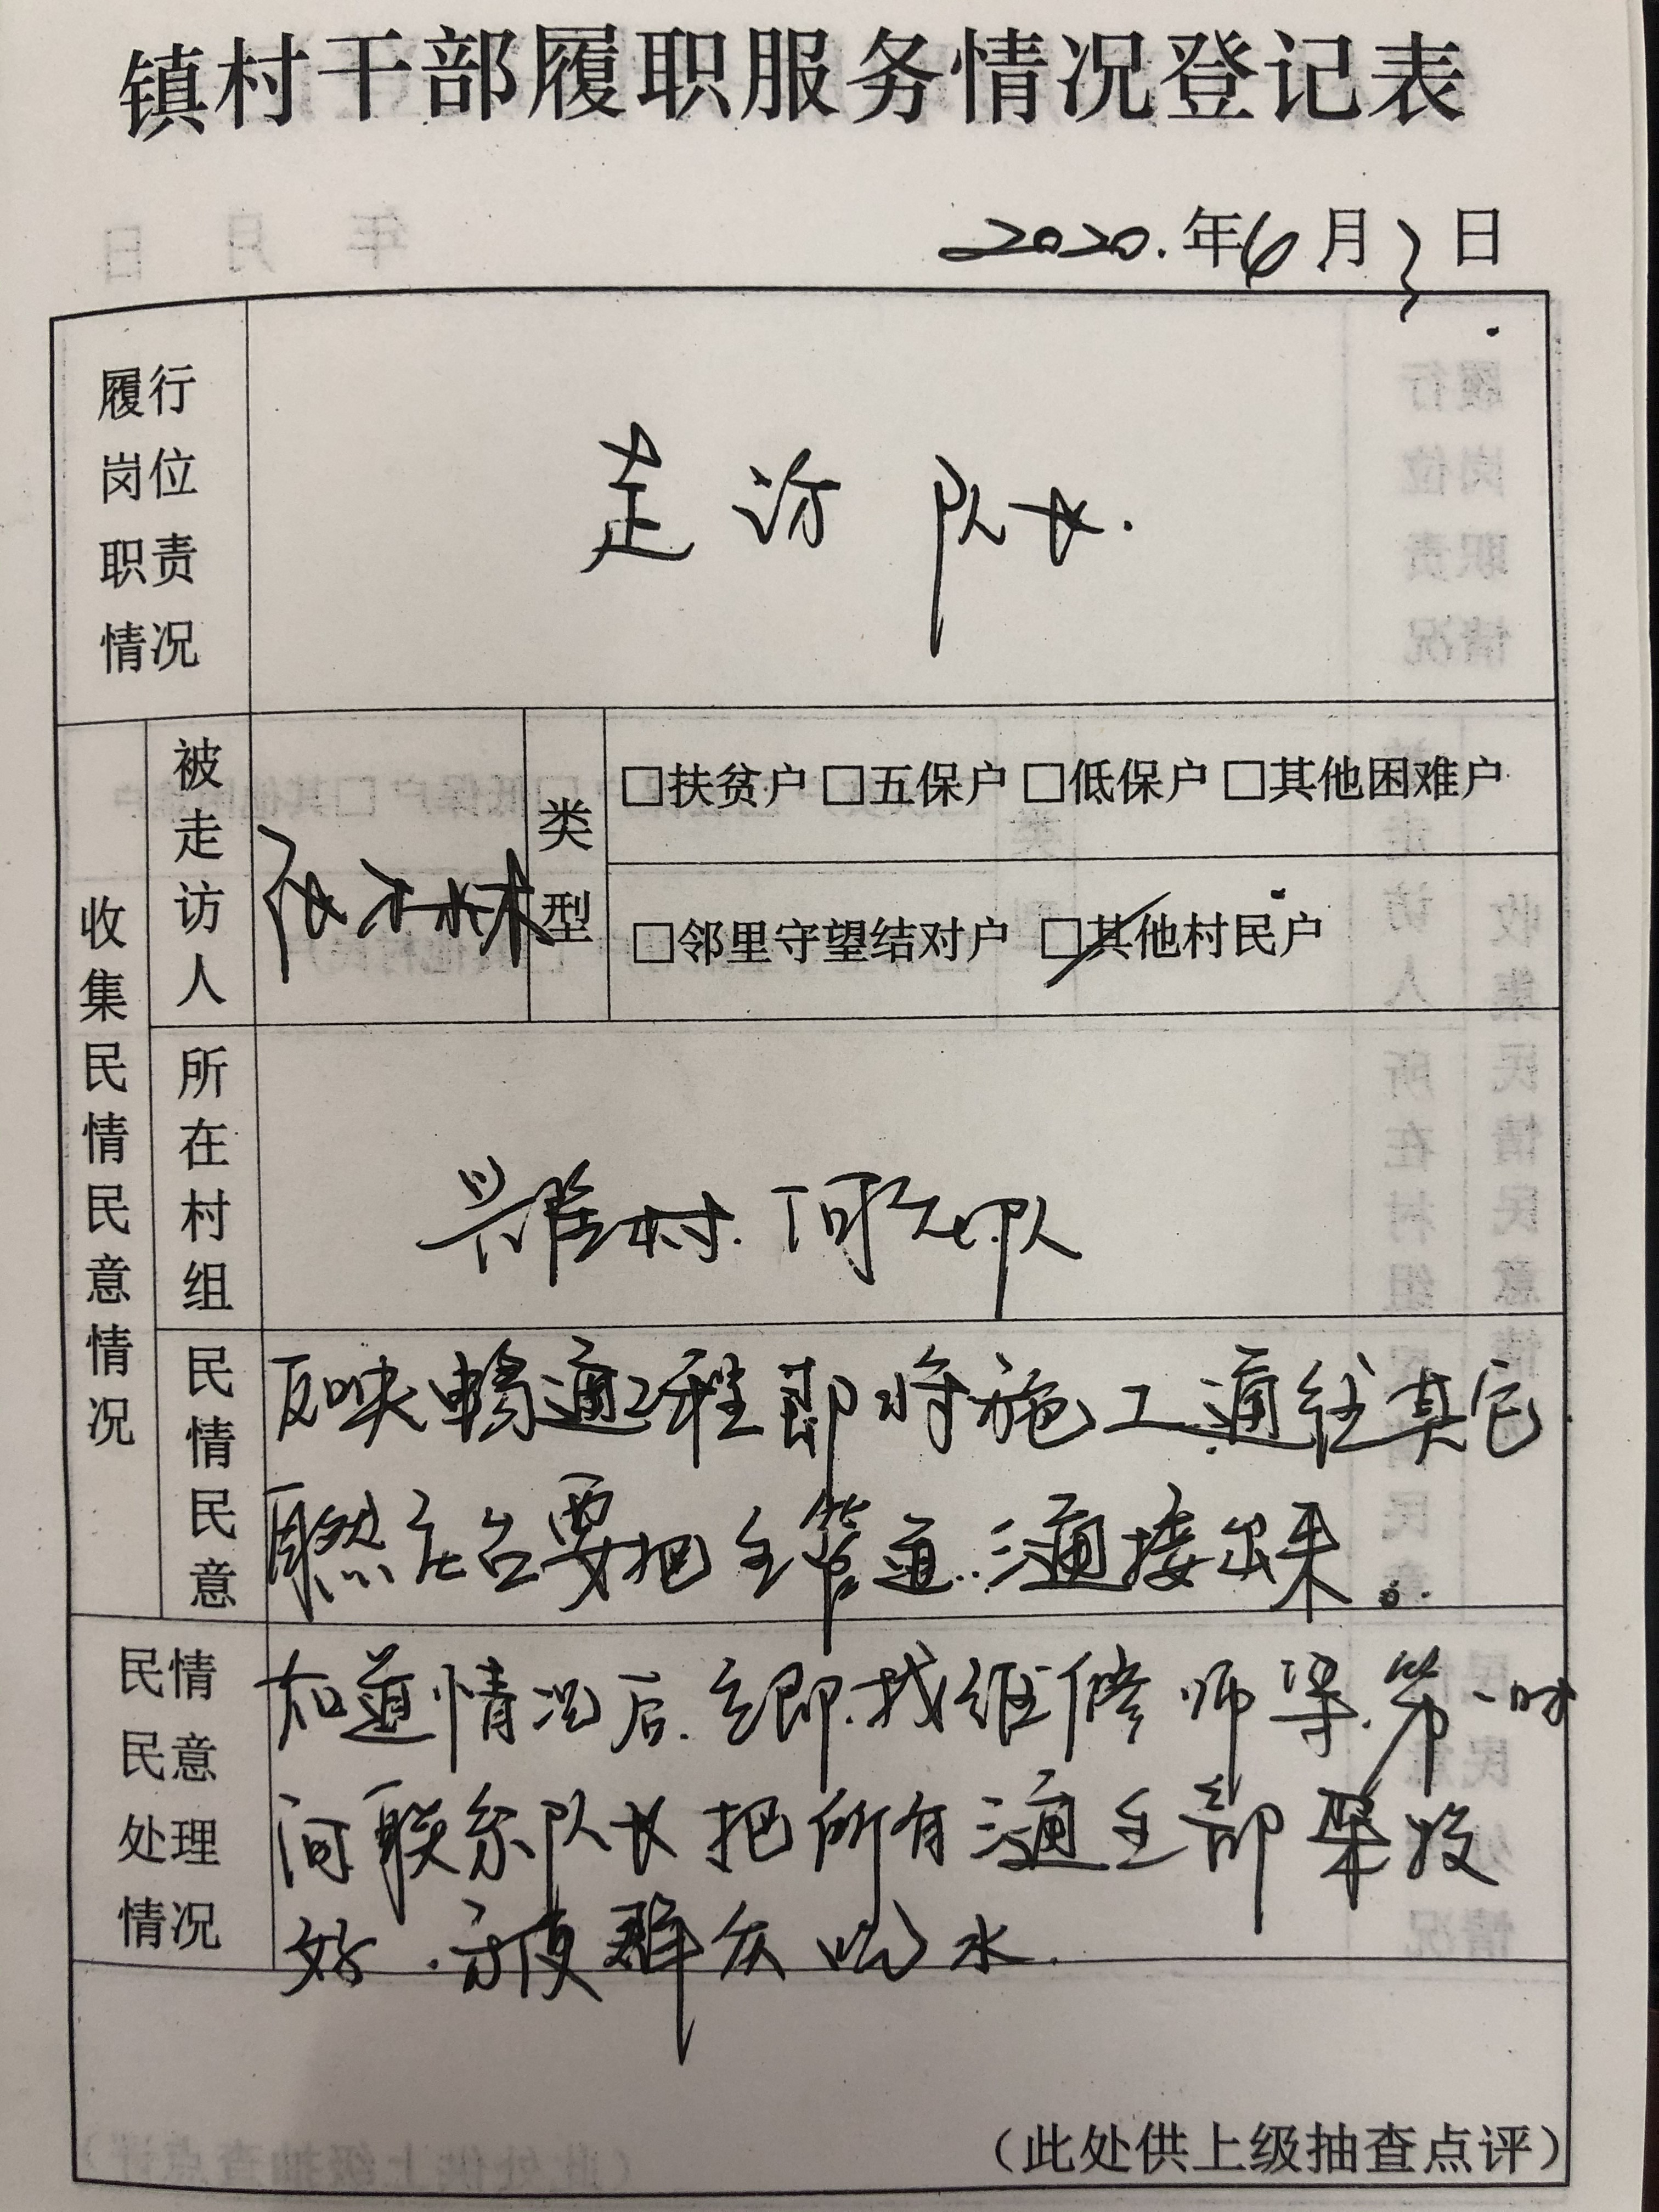 镇村干部履职服务情况登记表
2020.年6月3日
履行岗位职责情况
走访队长.
收集民情民意情况
被走访人
类型
□扶贫户 □五保户 □低保户 □其他困难户
□邻里守望结对户 □其他村民户
所在村组
村.
队
民情民意
反映畅通工程即将施工.通往其它
庄台要把主管道..三通接出来。
民情民意处理情况
知道情况后.立即.找维修师
第一时
间联系队长把所有三通全部
好.方便群众吃水.
(此处供上级抽查点评)